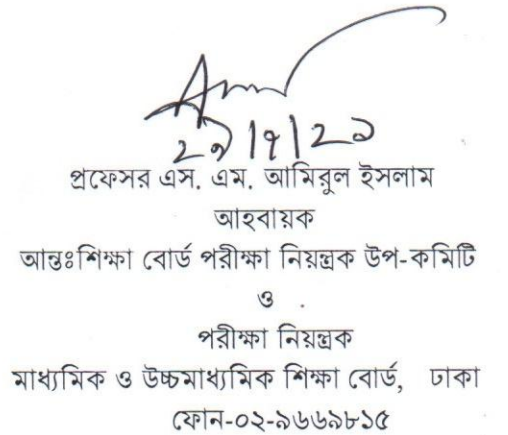 ২৯|৭|২১
প্রফেসর এস. এম. আমিরুল ইসলাম
আহবায়ক
আন্তঃশিক্ষা বোর্ড পরীক্ষা নিয়ন্ত্রক উপ-কমিটি
ও
পরীক্ষা নিয়ন্ত্রক
মাধ্যমিক ও উচ্চমাধ্যমিক শিক্ষা বোর্ড, ঢাকা
ফোন-০২-৯৬৬৯৮১৫